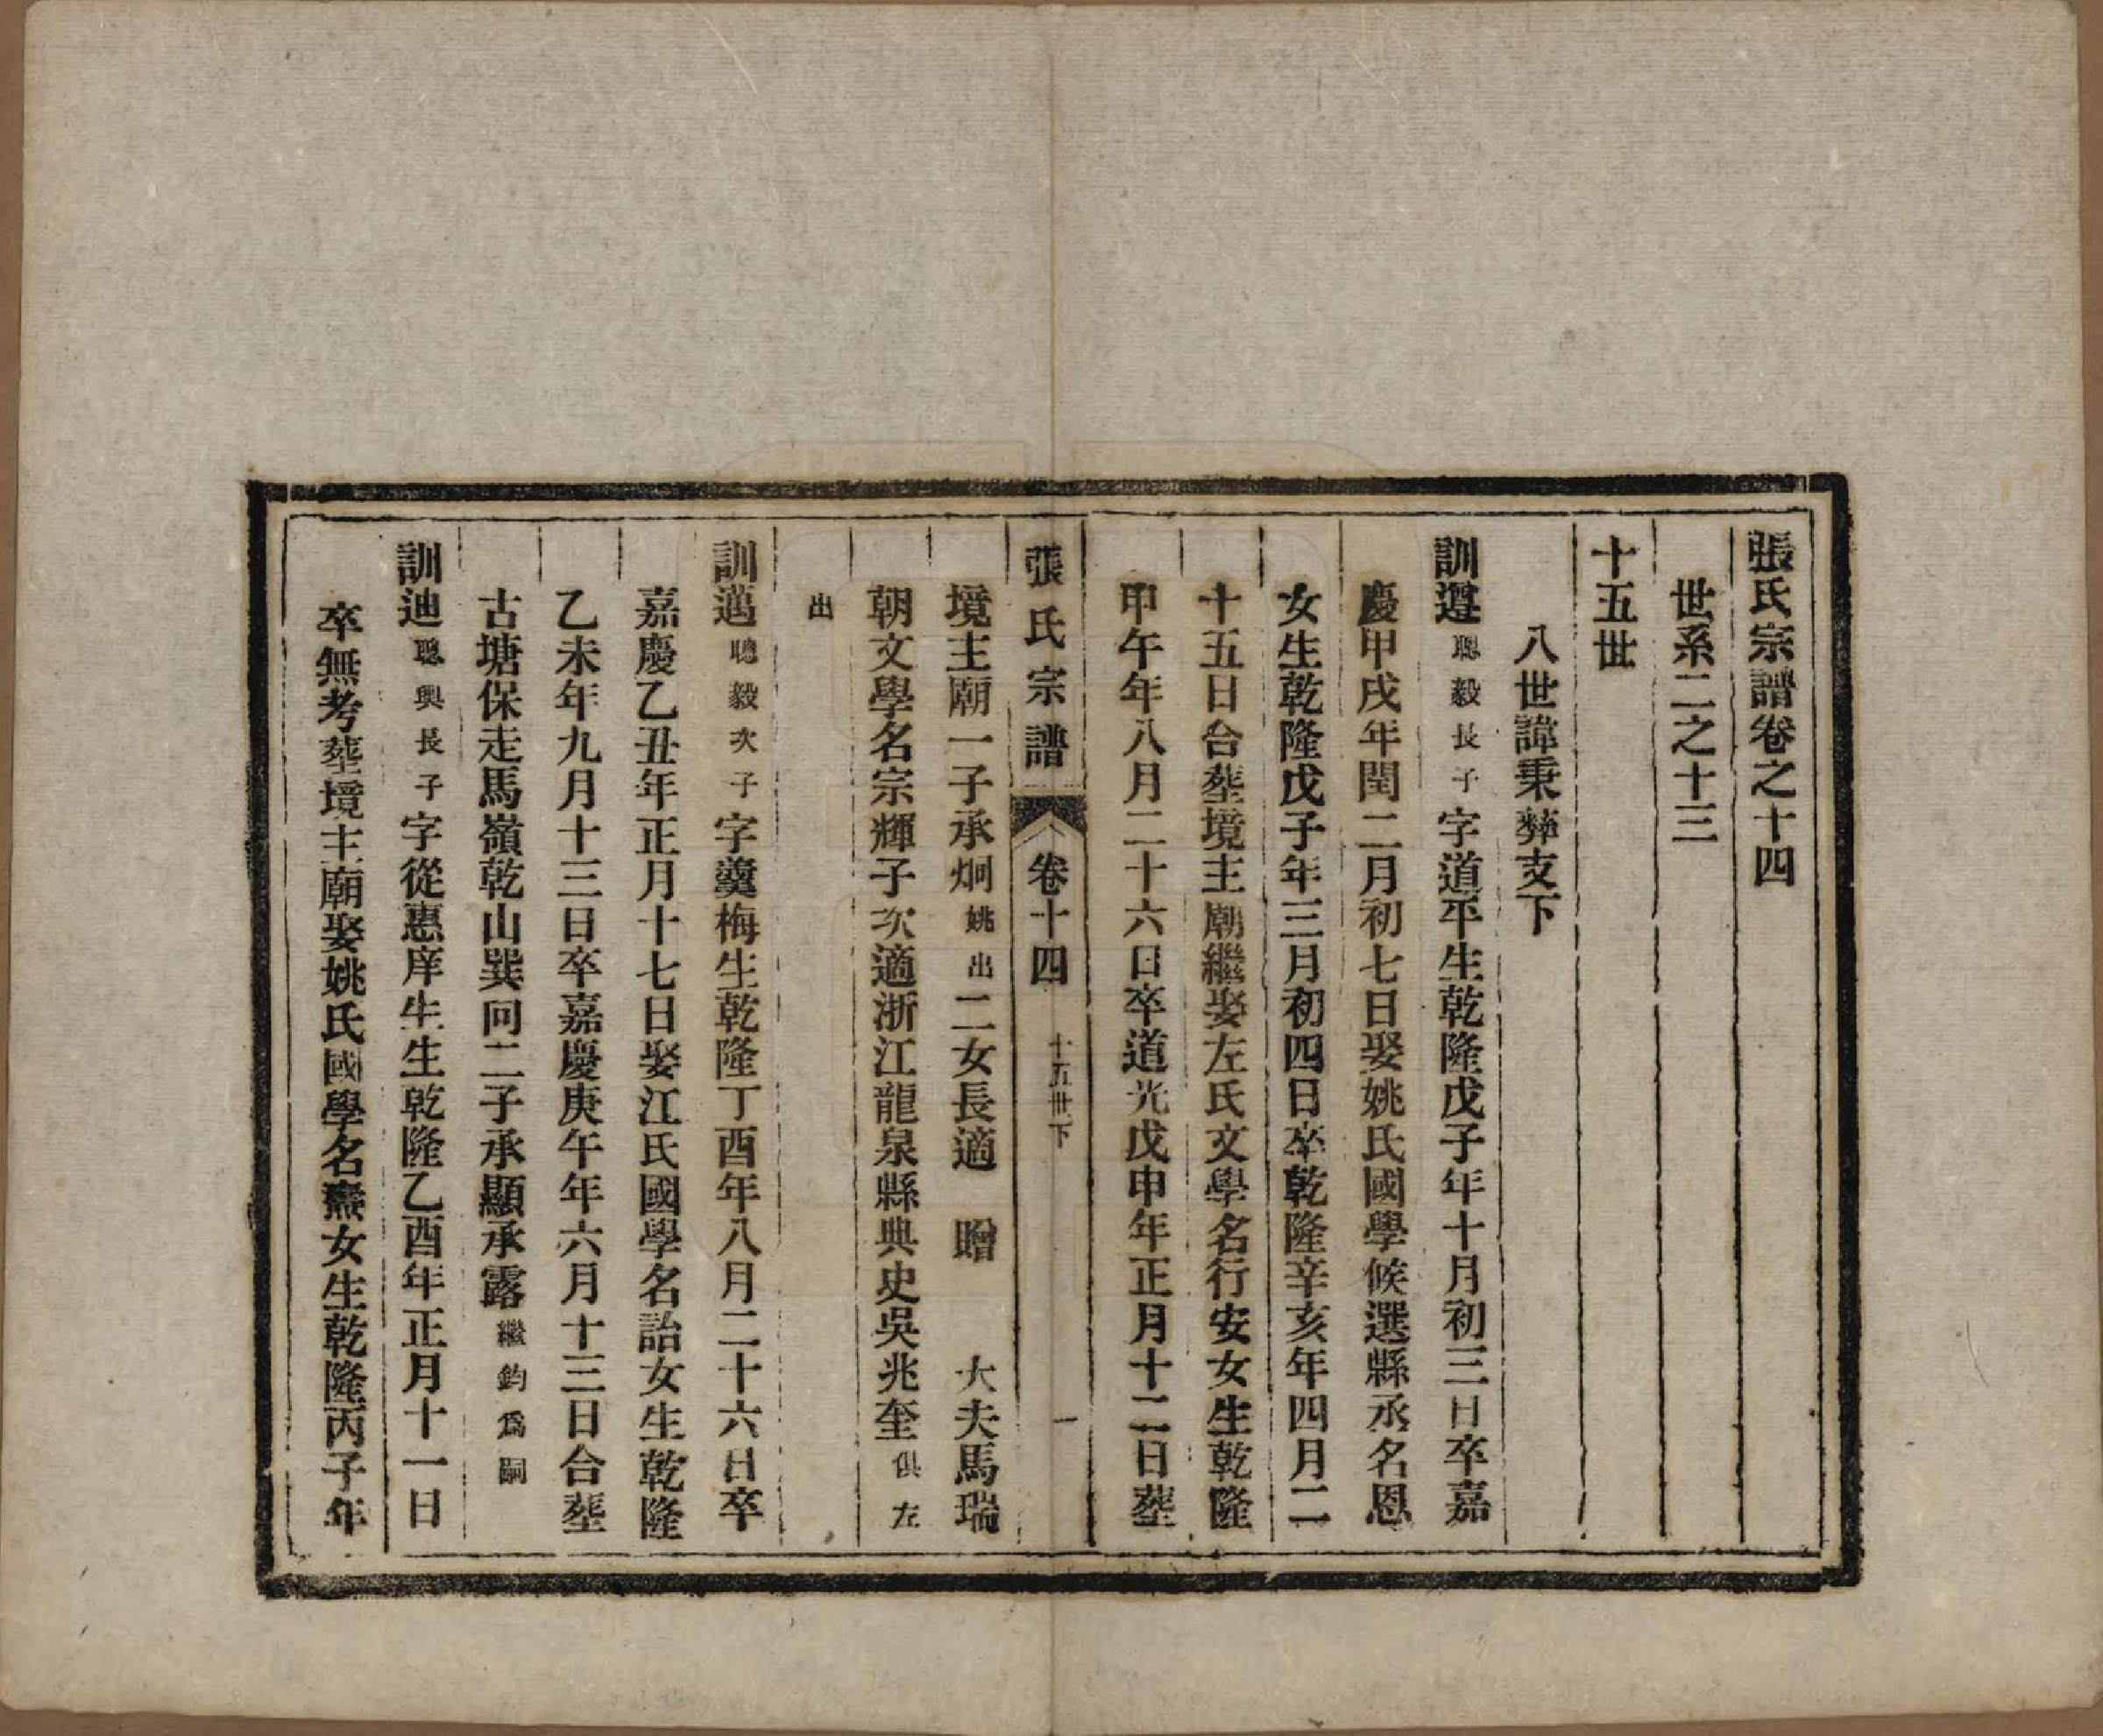 張氏宗譜卷之十四
世系二之十三
十五世
八世諱秉彝支下
訓遵聰毅長子字道平生乾隆戊子年十月初三日卒嘉
慶甲戌年閏二月初七日娶姚氏國學候選縣丞名恩
女生乾隆戊子年三月初四日卒乾隆辛亥年四月二
十五日合塟境主廟繼娶左氏文學名行安女生乾隆
甲午年八月二十六日卒道光戊申年正月十二日塟
張氏宗譜 卷十四 十五世下 一
境主廟一子承炯姚出二女長適 贈 大夫馬瑞
朝文學名宗輝子次適浙江龍泉縣典史吳兆奎俱左
出
訓邁聰毅次子字羹梅生乾隆丁酉年八月二十六日卒
嘉慶乙丑年正月十七日娶江氏國學名詒女生乾隆
乙未年九月十三日卒嘉慶庚午年六月十三日合塟
古塘保走馬嶺乾山巽向二子承顯承露繼鈞爲嗣
訓迪聰興長子字從惠庠生生乾隆乙酉年正月十一日
卒無考塟境主廟娶姚氏國學名燾女生乾隆丙子年